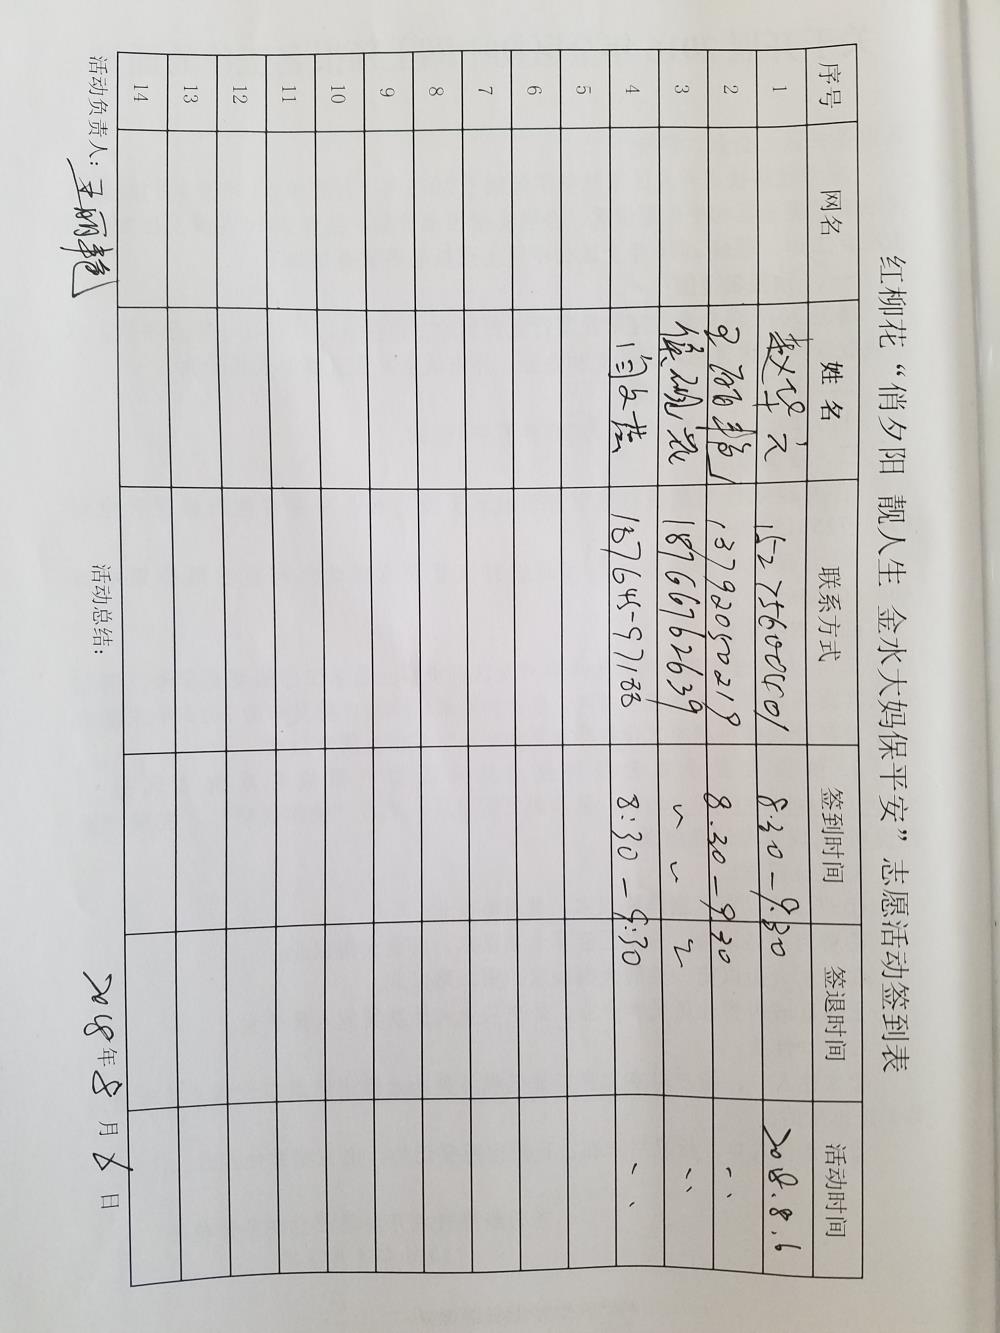 红柳花“俏夕阳 靓人生 金水大妈保平安”志愿活动签到表
序号 网名 姓名 联系方式 签到时间 签退时间 活动时间
1 15275600401 8:30-9:30 2018.8.6
2 王丽艳 13792050219 8:30-9:30 〃
3 18766762639 〃 〃 〃 〃
4 闫文芸 137645-97188 8:30-9:30 〃
5
6
7
8
9
10
11
12
13
14
活动负责人：王丽艳 活动总结： 2018年8月6日